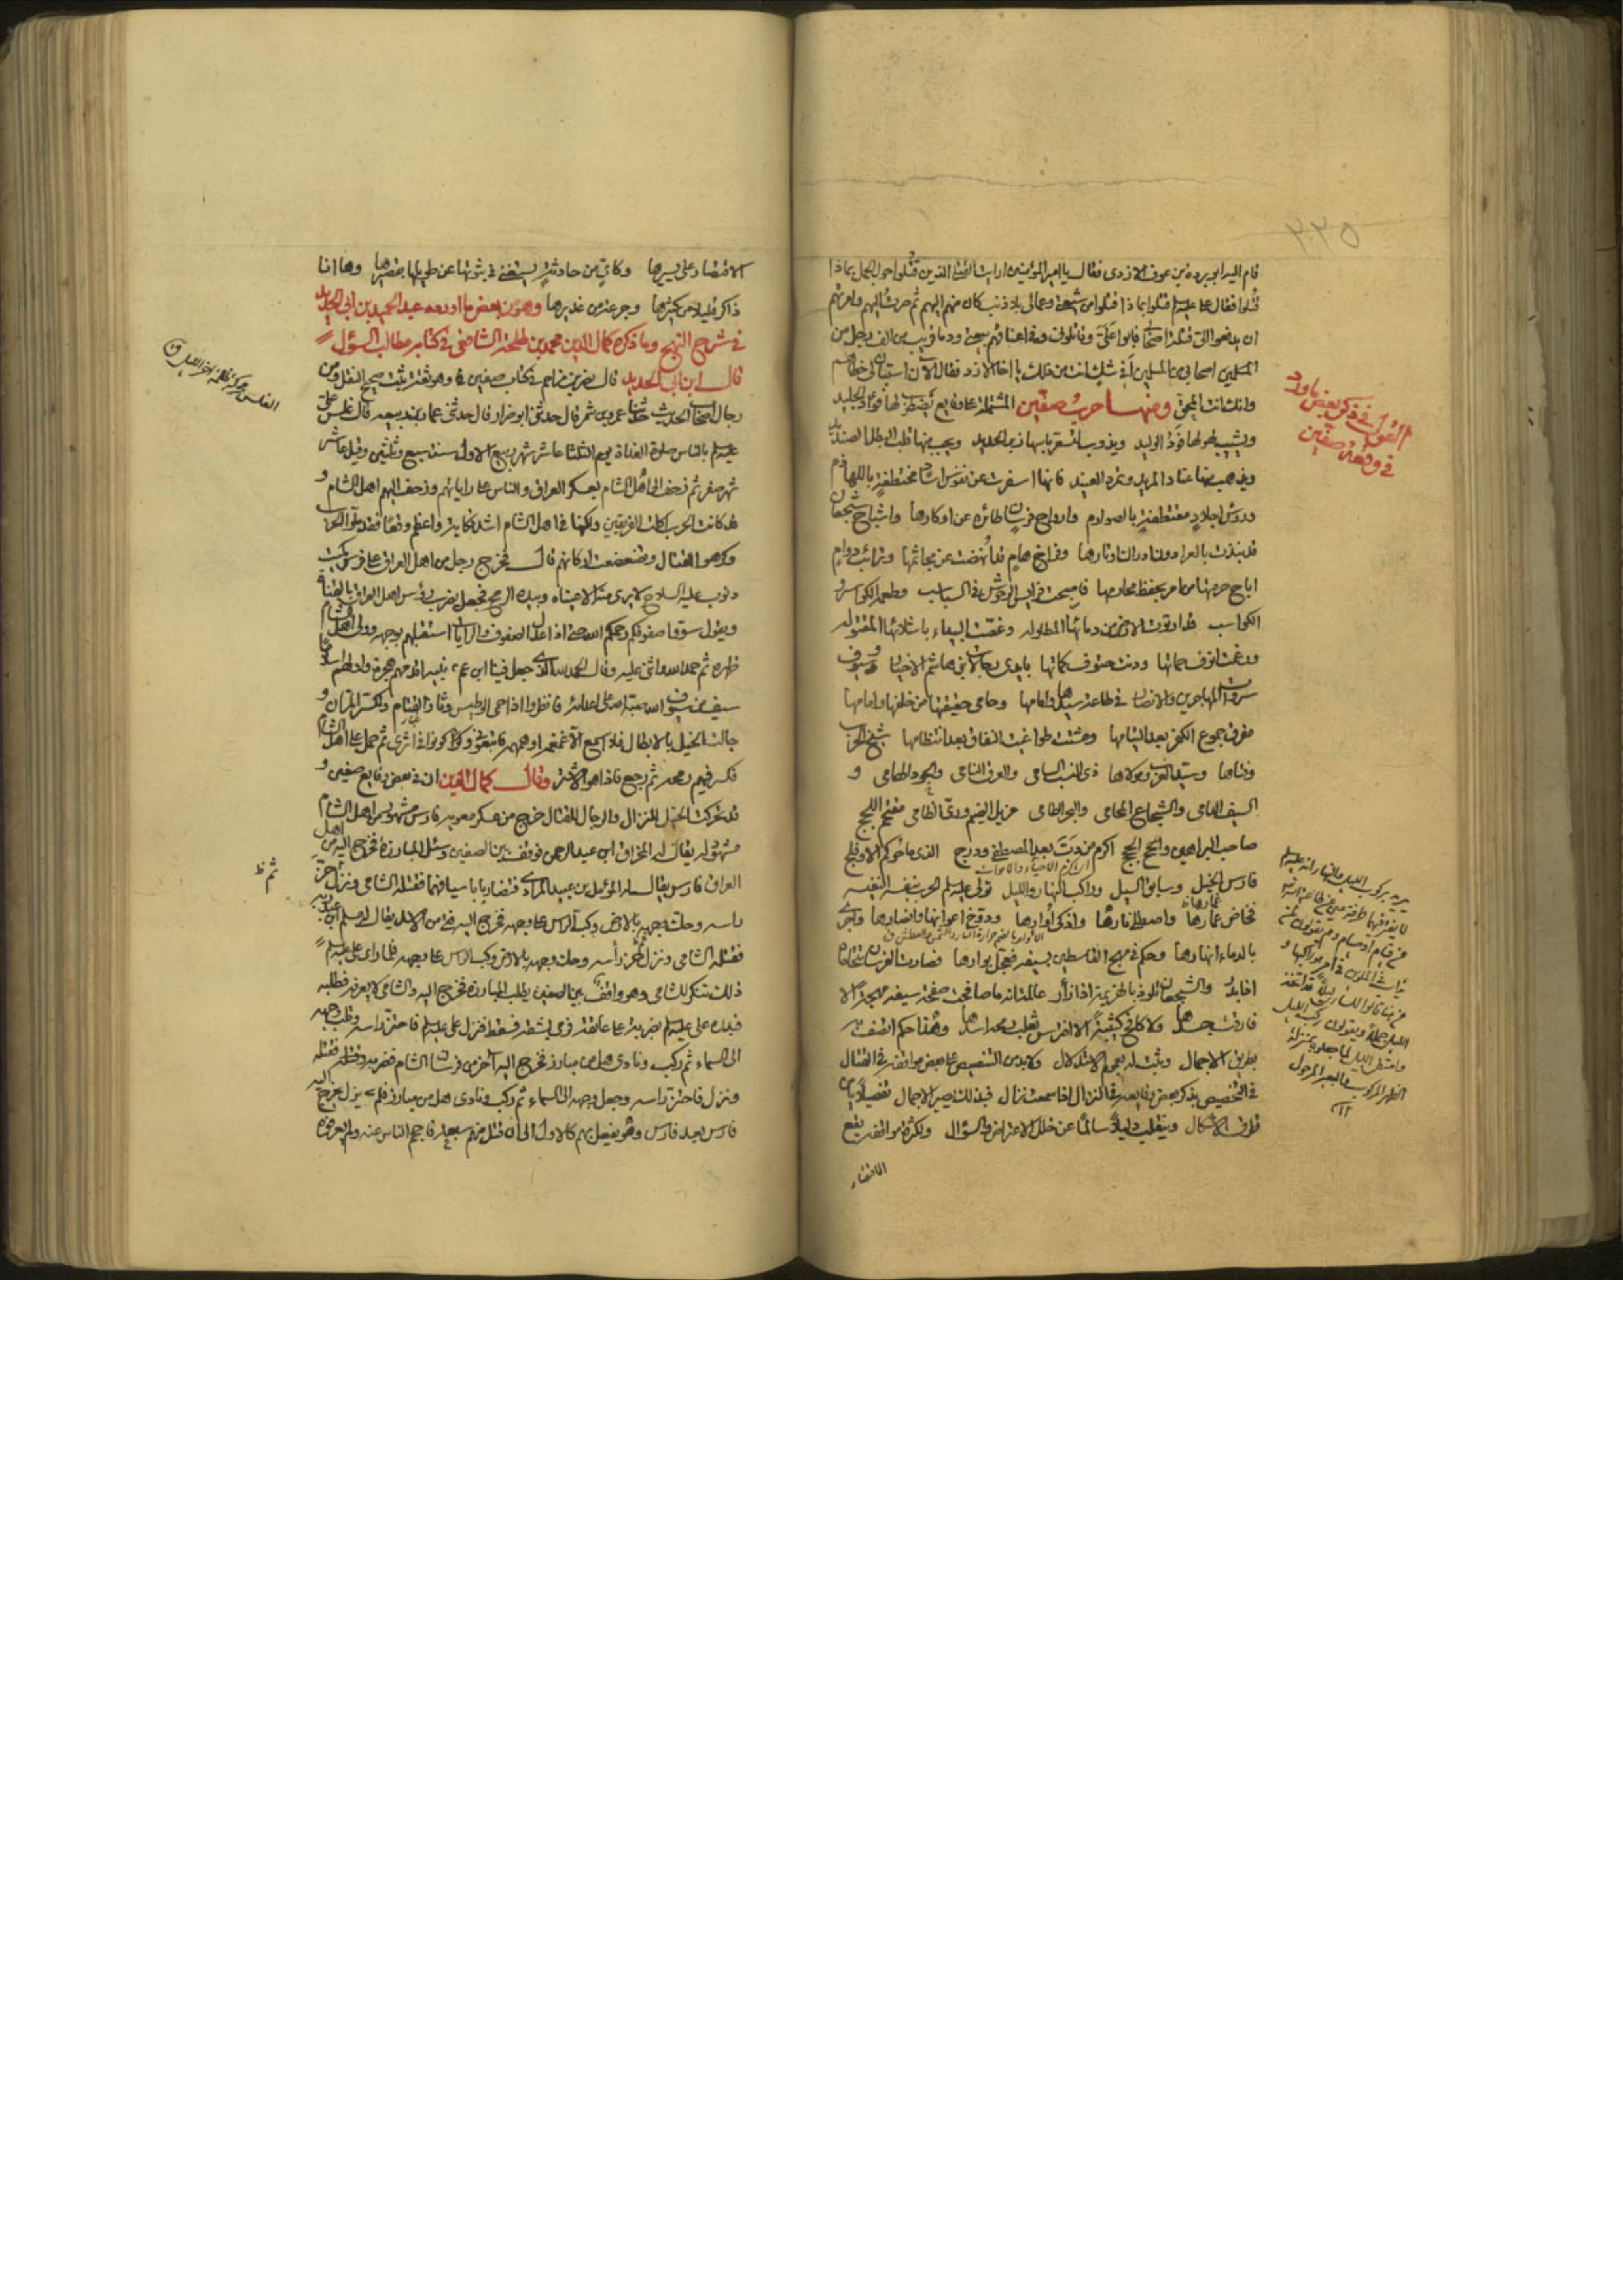 ٢٢٥
قام اليه ابو بردة بن عوف الازدى فقال يا امير المؤمنين ارايت القتلى الذين قتلوا حول الجمل بماذا
قتلوا فقال على عليه السلم قتلوا بما قتلوا من شيعتى وعمالى بلا ذنب كان منهم اليهم ثم صرت اليهم وامرتهم
ان يدفعوا الى قتلة اصحابى فابوا على وقاتلونى وفى اعناقهم بيعتى ودماء قريب من الف رجل من
المسلمين اصحابى من المسلمين افى شك انت من ذلك يا اخا الازد فقال الان استبان لى خطاهم
وانك انت المحق ومنها حرب صفين المشتملة على وقايع يضطرب لها فؤاد الجليد
ويشيب لهولها فود الوليد ويذوب لتسعر باسها زبر الحديد ويجب منها قلب البطل الصنديد
ويذهب بها عناد المريد وتمرد العنيد فانها اسفرت عن نفوس اساد مختطفة باللهازم
ورؤس اجلاد مقتطفة بالصوارم وارواح فرسان طائرة عن اوكارها واشباح شجعان
قد نبذت بالعراء دون ادراك اوتارها وفراخ هام قد انهضت عن مجاثمها وترائب دوام
اباح حرمتها من امر بحفظ محارمها فاصبحت فرايس الوحوش فى السباسب وطعمة الكواسر و
الكواسب قد ارتوت الارض من دمائها المطلولة وغصت البيداء باشلائها المقتولة
ورغمت انوف حماتها ودنت حتوف كماتها بايدى رجالات بنى هاشم الاخيار وسيوف
سروات المهاجرين والانصار فى طاعة سيدها وامامها وحامى حقيقتها من خلفها وامامها
مفرق جموع الكفر بعد التيامها ومشتت طواغيت النفاق بعد انتظامها شيخ الحرب
وفتاها وسيد العرب ومولاها ذى النسب السامى والعرق النامى والجود الهامى و
السيف الدامى والشجاع المحامى والبحر الطامى مزيل الضيم وروى الظامى مقتحم اللجج
صاحب البراهين والحجج اكرم من دب بعد المصطفى ودرج الذى ما حوكم الا وفلج
اى اكرم الاحياء والاموات
فارس الخيل وسابق السيل وراكب النهار والليل تولى عليه السلم الحرب بنفسه النفيسة
فخاض غمارها واصطلى نارها واذكى اوارها ودوخ اعوانها وانصارها واجرى
الاوار بالضم حرارة النار والشمس والعطش ق
بالدماء انهارها وحكم فى مهج القاسطين بسيفه فعجل بوارها فصارت الفرسان تتحاماه
اذا بدر والشجعان تلوذ بالهزيمة اذا زأر عالمة انه ما صافحت صفحة سيفه مهجة الا
فارقت جسدها ولا كافح كتيبة الا افترس ثعلب رمحه اسدها وهذا حكم اتصف به
بطريق الاجمال وثبت له بعموم الاستدلال ولا بد من التنصيص على بعض مواقفه فى القتال
فى التخصيص بذكر بعض وقايعه فى النزال اذا سمعت نزال فبذلك يصير الاجمال تفصيلا بان
طرف الاشكال وينقلب دليلا سالما عن خلل الاعتراض والسؤال ولكثرة مواقفه يقع
الاقتصار
القول فى ذكر بعض ما ورد
فى وقعة صفين
الاقتصار على يسيرها وكاين من حادثة يستغنى فى ثبوتها عن طويلها بقصيرها وها انا
ذاكر قليلا من كثيرها وجرعة من غديرها وهو من بعض ما اورده عبد الحميد بن ابى الحديد
فى شرح النهج وما ذكره كمال الدين محمد بن طلحة الشافعى فى كتابه مطالب السؤل
قال ابن ابى الحديد قال نصر بن مزاحم فى كتاب صفين وهو ثقة ثبت صحيح النقل من
رجال اصحاب الحديث حدثنا عمرو بن شمر قال حدثنى ابو ضرار قال حدثنى عمار بن ربيعة قال غلس على
عليه السلم بالناس صلوة الغداة يوم الثلثا عاشر شهر ربيع الاول سنة سبع وثلثين وقيل عاشر
شهر صفر ثم زحف الى اهل الشام بعسكر العراق والناس على راياتهم وزحف اليهم اهل الشام و
قد كانت الحرب اكلت الفريقين ولكنها فى اهل الشام اشد نكاية واعظم وقعا فقد ملوا الحرب
وكرهوا القتال وتضعضعت اركانهم قال فخرج رجل من اهل العراق على فرس كميت
ذنوب عليه السلاح لا يرى منه الا عيناه وبيده الرمح فجعل يضرب رؤس اهل العراق بالقناة
ويقول سووا صفوفكم رحمكم الله حتى اذا عدل الصفوف والرايات استقبلهم بوجهه وولى اهل الشام
ظهره ثم حمد الله واثنى عليه وقال الحمد لله الذى جعل فينا ابن عم نبيه اقدمهم هجرة واولهم اسلاما
سيف من سيوف الله صبه على اعدائه فانظروا اذا حمى الوطيس وثار القتام وتكسر المران و
جالت الخيل بالابطال فلا اسمع الا غمغمة او همهمة فاتبعونى وكونوا فى اثرى ثم حمل على اهل الشام
فكسر فيهم رمحه ثم رجع فاذا هو الاشتر وقال كمال الدين ان فى بعض وقايع صفين و
قد تحركت الخيل للنزال والرجال للقتال خرج من عسكر معوية فارس مشهور من اهل الشام
مشهور له يقال له المخراق ابن عبد الرحمن فوقف بين الصفين وسئل المبارزة فخرج اليه من اهل
العراق فارس يقال له المؤمل بن عبيد المرادى فتضاربا باسيافهما فقتله الشامى ونزل فحز
راسه وحك وجهه بالارض وكب الراس على وجهه فخرج اليه فتى من الازد يقال له مسلم بن عبد ربه
فقتله الشامى ونزل فحز رأسه وحك وجهه بالارض وكب الراس على وجهه فلما راى على عليه السلم
ذلك تنكر للشامى وهو واقف بين الصفين يطلب المبارزة فخرج اليه والشامى لا يعرفه فطلبه
فبدره على عليه السلم بضربة على عاتقه فرمى بشقه فسقط فنزل على عليه السلم فاحتز راسه وقلب وجهه
الى السماء ثم ركب ونادى هل من مبارز فخرج اليه آخر من فرسان الشام فضربه فقتله
ونزل فاحتز راسه وجعل وجهه الى السماء ثم ركب ونادى هل من مبارز فلم يزل يخرج اليه
فارس بعد فارس وهو يفعل بهم كالاول الى ان قتل منهم سبعة فاحجم الناس عنه ولم يعرفوه
الغلس محركة ظلمة اخر الليل ق
ثم ظ